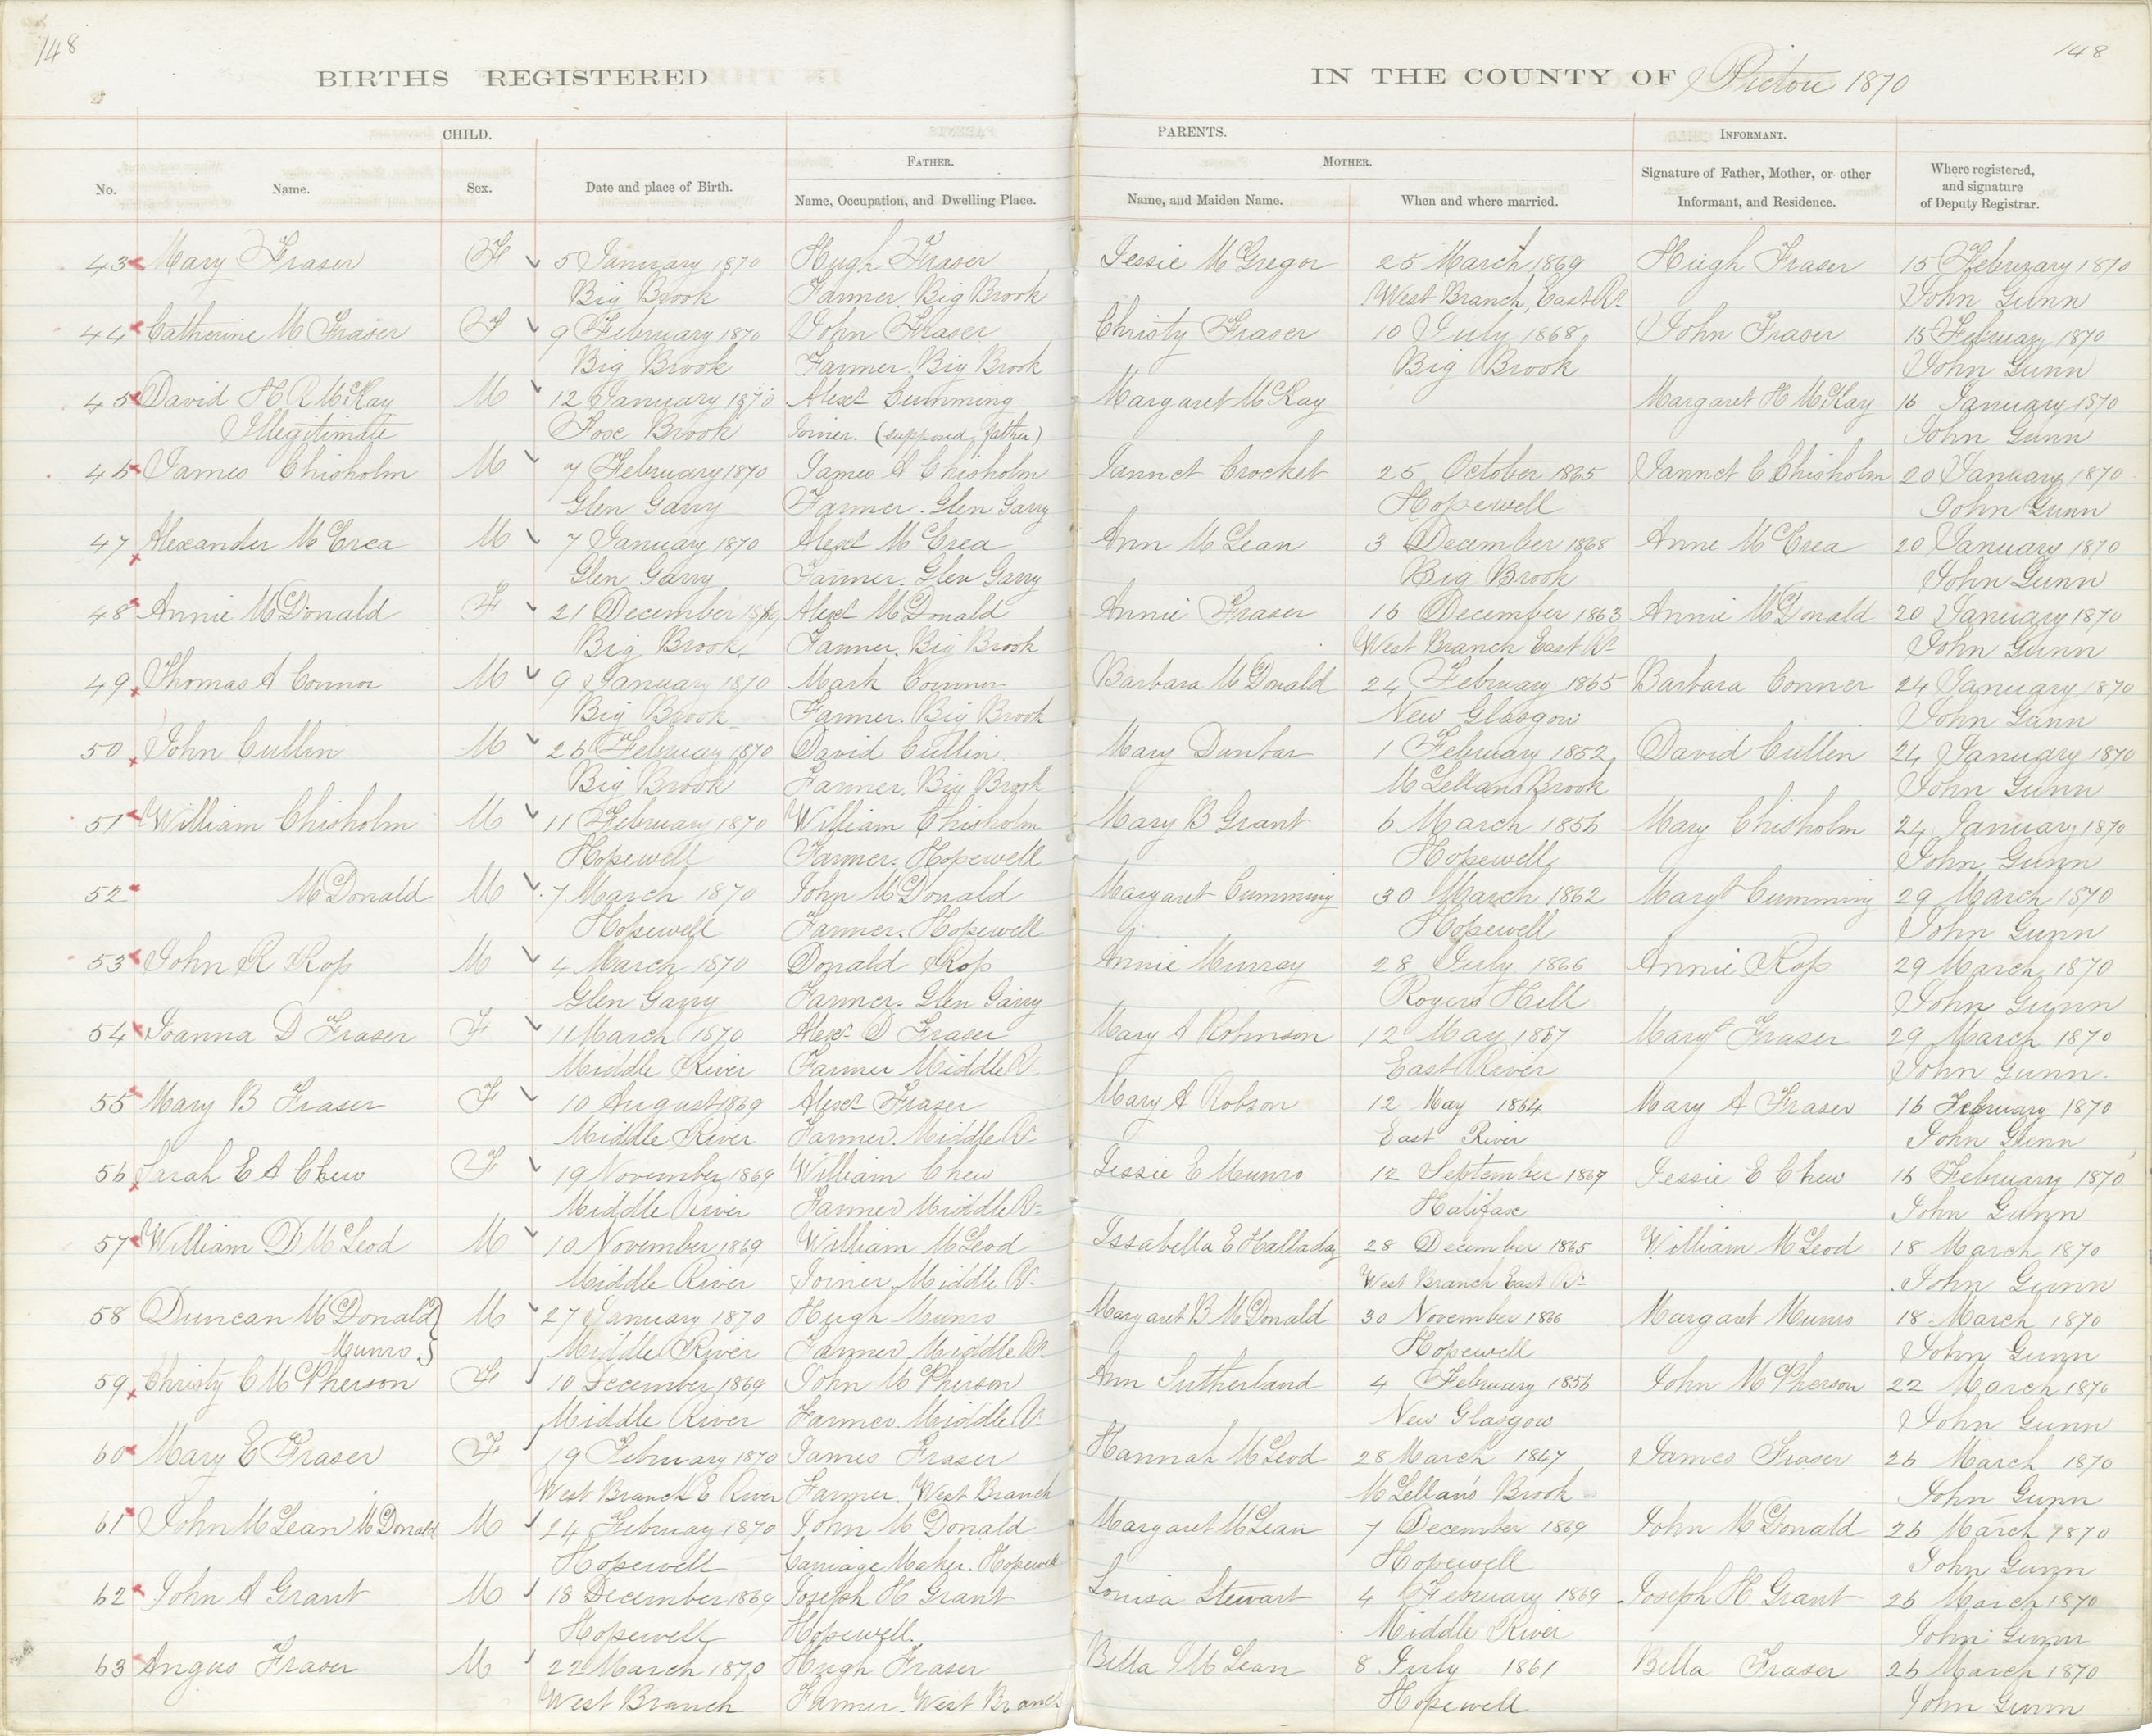 148
148
BIRTHS REGISTERED
IN THE COUNTY OF Pictou 1870
CHILD.
PARENTS.
INFORMANT.
FATHER.
MOTHER.
No.
Name.
Sex.
Date and place of Birth.
Name, Occupation, and Dwelling Place.
Name, and Maiden Name.
When and where married.
Signature of Father, Mother, or other Informant, and Residence.
Where registered, and signature of Deputy Registrar.
43 Mary Fraser F 5 January 1870 Hugh Fraser Jessie McGregor 25 March 1869 Hugh Fraser 15 February 1870
Big Brook Farmer. Big Brook West Branch, East Rr John Gunn
44 Catherine M Fraser F 9 February 1870 John Fraser Christy Fraser 10 July 1868 John Fraser 15 February 1870
Big Brook Farmer. Big Brook Big Brook John Gunn
45 David H R McKay M 12 January 1870 Alexr Cumming Margaret McKay Margaret H McKay 16 January 1870
Illegitimate Foxe Brook Joiner. (supposed father) John Gunn
46 James Chisholm M 7 February 1870 James A Chisholm Jannet Crocket 25 October 1865 Jannet C Chisholm 20 January 1870
Glen Garry Farmer. Glen Garry Hopewell John Gunn
47 Alexander McCrea M 7 January 1870 Alexr McCrea Ann McLean 3 December 1868 Anne McCrea 20 January 1870
Glen Garry Farmer. Glen Garry Big Brook John Gunn
48 Annie McDonald F 21 December 1869 Alexr McDonald Annie Fraser 16 December 1863 Annie McDonald 20 January 1870
Big Brook. Farmer. Big Brook West Branch East Rr John Gunn
49 Thomas A Connor M 9 January 1870 Mark Connor Barbara McDonald 24 February 1865 Barbara Conner 24 January 1870
Big Brook Farmer. Big Brook New Glasgow John Gunn
50 John Cullin M 26 Februay 1870 David Cullin Mary Dunbar 1 February 1852 David Cullen 24 January 1870
Big Brook Farmer. Big Brook McLellans Brook John Gunn
51 William Chisholm M 11 February 1870 William Chisholm Mary B Grant 6 March 1856 Mary Chisholm 24 January 1870
Hopewell Farmer. Hopewell Hopewell John Gunn
52 McDonald M 7 March 1870 John McDonald Margaret Cumming 30 March 1862 Maryt Cumming 29 March 1870
Hopewell Farmer. Hopewell Hopewell John Gunn
53 John R Ross M 4 March 1870 Donald Ross Annie Murray 28 July 1866 Annie Ross 29 March 1870
Glen Garry Farmer. Glen Garry Rogers Hill John Gunn
54 Joanna D Fraser F 11 March 1870 Alexr D Fraser Mary A Robinson 12 May 1867 Maryt Fraser 29 March 1870
Middle River Farmer Middle Rr East River John Gunn.
55 Mary B Fraser F 10 August 1869 Alexr Fraser Mary A Robson 12 May 1864 Mary A Fraser 16 February 1870
Middle River Farmer. Middle Rr East River John Gunn
56 Sarah E A Chew F 19 November 1869 William Chew Jessie E Munro 12 September 1867 Jessie E Chew 16 February 1870
Middle River Farmer Middle Rr Halifax John Gunn
57 William D McLeod M 10 November 1869 William McLeod Issabella E Halladay 28 December 1865 William McLeod 18 March 1870
Middle River Joiner. Middle Rr West Branch East Rr John Gunn
58 Duncan McDonald M 27 January 1870 Hugh Munro Margaret B McDonald 30 November 1866 Margaret Munro 18 March 1870
Munro Middle River Farmer Middle Rr Hopewell John Gunn
59 Christy C McPherson F 10 December 1869 John McPherson Ann Sutherland 4 February 1856 John McPherson 22 March 1870
Middle River Farmer. Middle Rr New Glasgow John Gunn
60 Mary E Fraser F 19 February 1870 James Fraser Hannah McLeod 28 March 1867 James Fraser 26 March 1870
West Branch E River Farmer. West Branch McLellan's Brook John Gunn
61 John McLean McDonald M 24 Februay 1870 John McDonald Margaret McLean 7 December 1869 John McDonald 26 March 1870
Hopewell Carriage Maker. Hopewell Hopewell John Gunn
62 John A Grant M 18 December 1869 Joseph H Grant Louisa Stewart 4 February 1869 Joseph H. Grant 26 March 1870
Hopewell Hopewell. Middle River John Gunn
63 Angus Fraser M 22 March 1870 Hugh Fraser Bella McLean 8 July 1861 Bella Fraser 26 March 1870
West Branch Farmer. West Branch Hopewell John Gunn